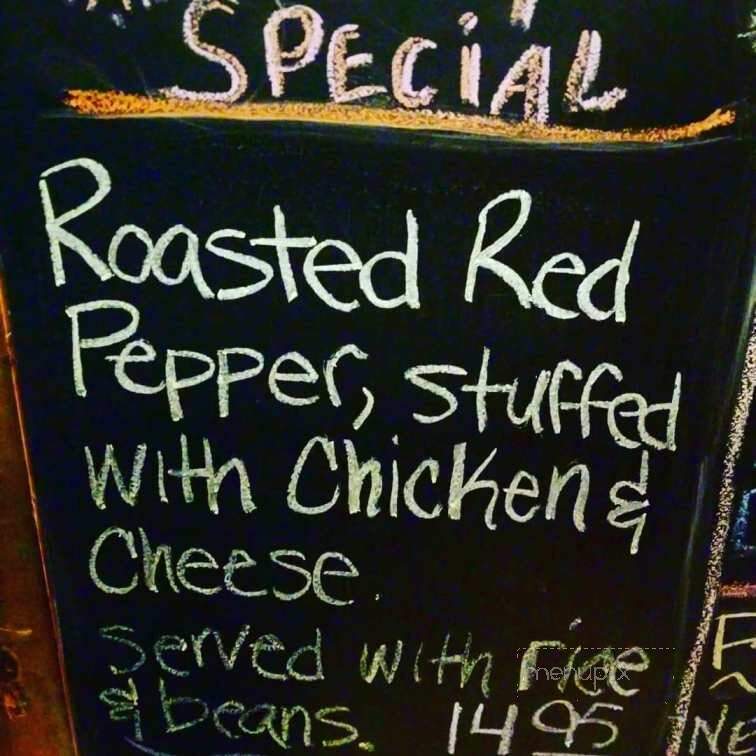 SPECIAL
Roasted Red
Pepper, stuffed
with Chicken &
Cheese.
Served with rice
menupix
& beans. 14 95
NE